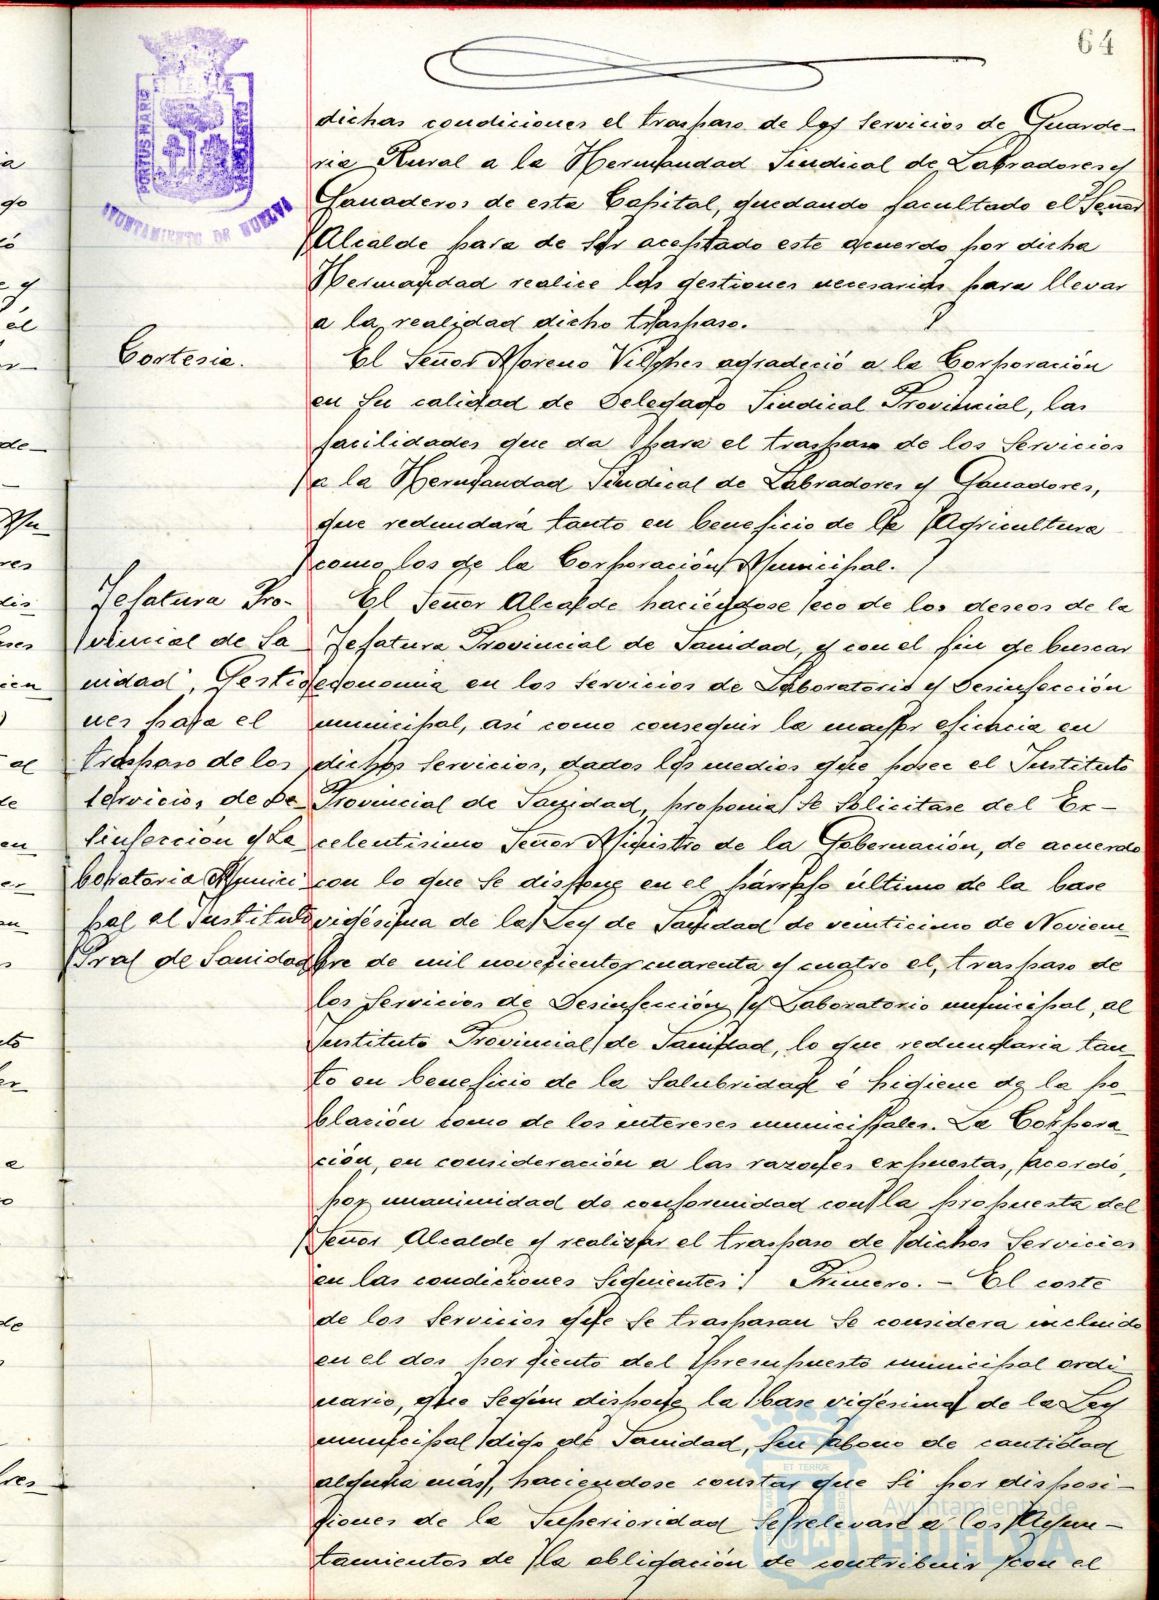 64
PORTUS MARIS
ET TERRAE
AYUNTAMIENTO DE HUELVA
dichas condiciones el traspaso de los servicios de Guarde-
ria Rural a la Hermandad Sindical de Labradores y
Ganaderos de esta Capital, quedando facultado el Señor
Alcalde para de ser aceptado este acuerdo por dicha
Hermandad realice las gestiones necesarias para llevar
a la realidad dicho traspaso.
Cortesia.
El Señor Moreno Vilches agradeció a la Corporación
en su calidad de Delegado Sindical Provincial, las
facilidades que da para el traspaso de los servicios
a la Hermandad Sindical de Labradores y Ganadores,
que redundará tanto en beneficio de la Agricultura
como los de la Corporación Municipal.
Jefatura Pro-
vincial de Sa-
nidad, Gestio
nes para el
traspaso de los
servicios de De-
sinfección y La-
boratorio Munici-
pal al Instituto
Pral de Sanidad
El Señor Alcalde haciéndose eco de los deseos de la
Jefatura Provincial de Sanidad, y con el fin de buscar
economia en los servicios de Laboratorio y Desinfección
municipal, asi como conseguir la mayor eficacia en
dichos servicios, dados los medios que posee el Instituto
Provincial de Sanidad, proponia se solicitase del Ex-
celentisimo Señor Ministro de la Gobernación, de acuerdo
con lo que se dispone en el párrafo último de la base
vigésima de la Ley de Sanidad de veinticinco de Noviem-
bre de mil novecientos cuarenta y cuatro el, traspaso de
los servicios de Desinfección y Laboratorio municipal, al
Instituto Provincial de Sanidad, lo que redundaria tan-
to en beneficio de la salubridad é higiene de la po-
blación como de los intereses municipales. La Corpora-
ción, en consideración a las razones expuestas, acordó,
por unanimidad de conformidad con la propuesta del
Señor Alcalde y realizar el traspaso de dichos servicios
en las condiciones siguientes: Primero.- El coste
de los servicios que se traspasan se considera incluido
en el dos por ciento del presupuesto municipal ordi
nario, que según dispone la base vigésima de la Ley
municipal digo de Sanidad, sin abono de cantidad
alguna más, haciendose constar que si por disposi-
ciones de la Superioridad se relevase a los Ayun-
tamientos de la obligación de contribuir con el
Ayuntamiento de
HUELVA